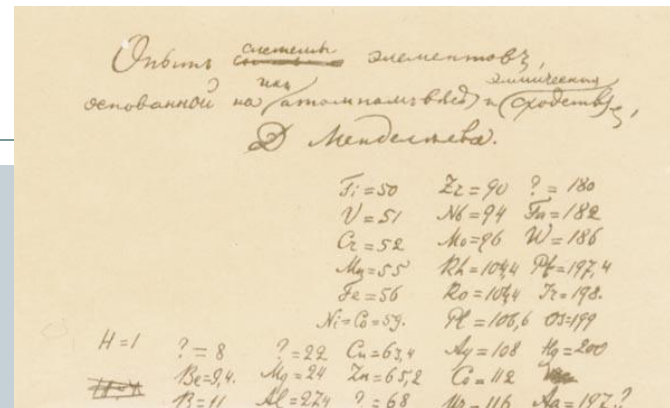 Опытъ системы элементовъ,
основанной на ихъ атомномъ вѣсѣ и химическомъ сходствѣ,
Д Менделѣева.
Ti=50 Zr=90 ?=180
V=51 Nb=94 Ta=182
Cr=52 Mo=96 W=186
Mn=55 Rh=104,4 Pt=197,4
Fe=56 Ro=104,4 Ir=198.
Ni=Co=59. Pl=106,6 Os=199
H=1 ?=8 ?=22 Cu=63,4 Ag=108 Hg=200
Be=9,4. Mg=24 Zn=65,2 Cd=112
B=11 Al=27,4 ?=68 Ur=116 Au=197?